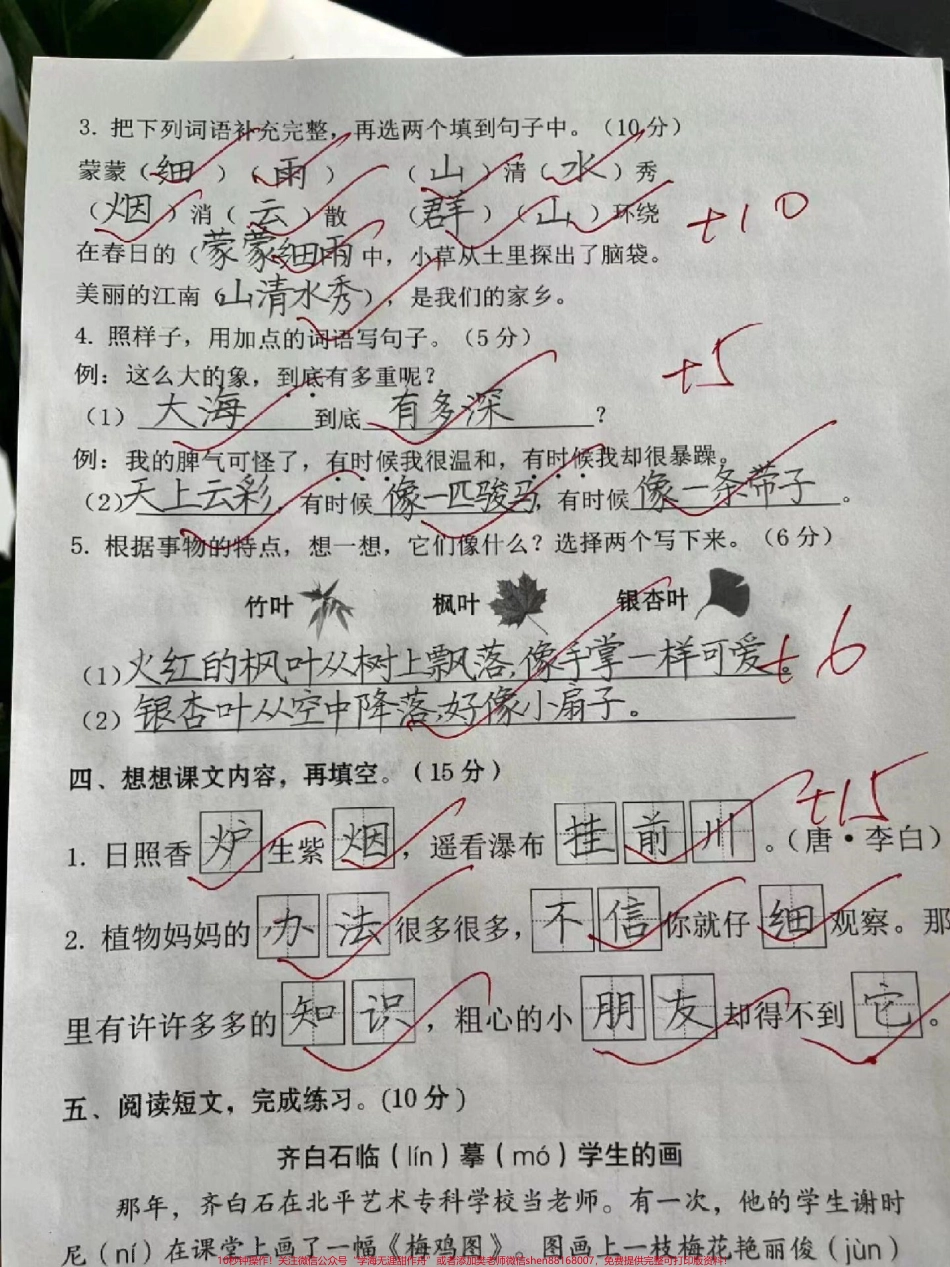 3. 把下列词语补充完整，再选两个填到句子中。（10分）
蒙蒙（细）（雨）　（山）清（水）秀
（烟）消（云）散　（群）（山）环绕 +10
在春日的（蒙蒙细雨）中，小草从土里探出了脑袋。
美丽的江南（山清水秀），是我们的家乡。
4. 照样子，用加点的词语写句子。（5分）
例：这么大的象，到底有多重呢？ +5
（1）大海到底有多深？
例：我的脾气可怪了，有时候我很温和，有时候我却很暴躁。
（2）天上云彩，有时候像一匹骏马，有时候像一条带子。
5. 根据事物的特点，想一想，它们像什么？选择两个写下来。（6分）
竹叶　枫叶　银杏叶
（1）火红的枫叶从树上飘落，像手掌一样可爱。 +6
（2）银杏叶从空中降落，好像小扇子。
四、想想课文内容，再填空。（15分） +15
1. 日照香炉生紫烟，遥看瀑布挂前川。（唐·李白）
2. 植物妈妈的办法很多很多，不信你就仔细观察。那
里有许许多多的知识，粗心的小朋友却得不到它。
五、阅读短文，完成练习。（10分）
齐白石临（lín）摹（mó）学生的画
那年，齐白石在北平艺术专科学校当老师。有一次，他的学生谢时
尼（ní）在课堂上画了一幅《梅鸡图》。图画上一枝梅花艳丽俊（jùn）
10秒钟操作！关注微信公众号“学海无涯甜作舟”或者添加樊老师微信shen88168007，免费提供完整可打印版资料！